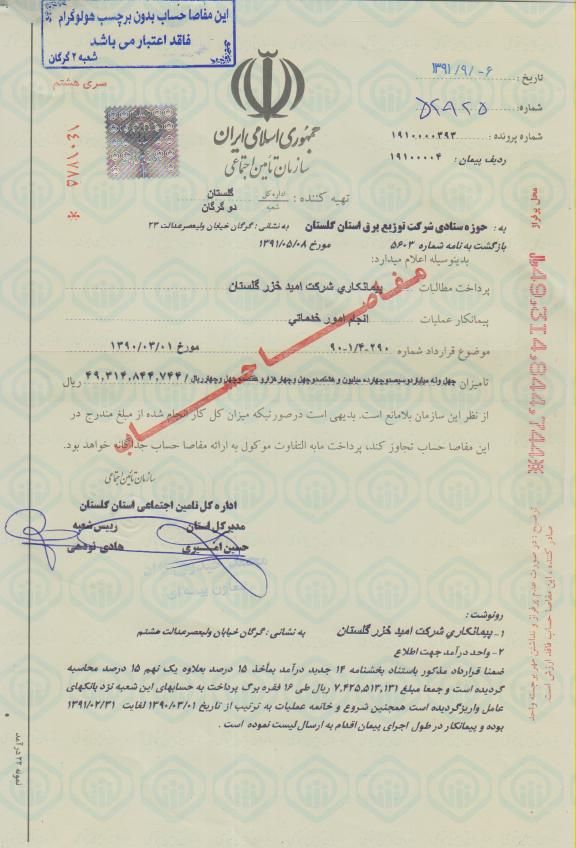 این مفاصا حساب بدون برچسب هولوگرام
فاقد اعتبار می باشد
شعبه ۲ گرگان
سری هشتم
۵۸۷۱۰۴۱
تاریخ : ۱۳۹۱/۹/-۶
شماره:
شماره پرونده : ۱۹۱۰۰۰۰۳۹۳
ردیف پیمان : ۱۹۱۰۰۰۰۴
جمهوری اسلامی ایران
سازمان تأمین اجتماعی
تهیه کننده : اداره کل گلستان
شعبه دو گرگان
به : حوزه ستادی شرکت توزیع برق استان گلستان به نشانی : گرگان خیابان ولیعصرعدالت ۲۳
بازگشت به نامه شماره ۵۶۰۳ مورخ ۱۳۹۱/۰۵/۰۸
بدینوسیله اعلام میدارد:
پرداخت مطالبات پیمانکاری شرکت امید خزر گلستان
پیمانکار عملیات انجام امور خدماتی
موضوع قرارداد شماره ۹۰-۱/۴-۲۹۰ مورخ ۱۳۹۰/۰۳/۰۱
تامیزان چهل ونه میلیاردوسیصدوچهارده میلیون و هشتصدوچهل وچهارهزارو هفتصدوچهل وچهارریال / ۴۹,۳۱۴,۸۴۴,۷۴۴ ریال
از نظر این سازمان بلامانع است. بدیهی است درصورتیکه میزان کل کار انجام شده از مبلغ مندرج در
این مفاصا حساب تجاوز کند، پرداخت مابه التفاوت موکول به ارائه مفاصا حساب جداگانه خواهد بود.
مفاصا حساب
سازمان تأمین اجتماعی
اداره کل تامین اجتماعی استان گلستان
مدیرکل استان رییس شعبه
حسین امیری هادی نودهی
معاون بیمه ای
رونوشت :
۱- پیمانکاری شرکت امید خزر گلستان به نشانی : گرگان خیابان ولیعصرعدالت هشتم
۲- واحد درآمد جهت اطلاع
ضمنا قرارداد مذکور باستناد بخشنامه ۱۴ جدید درآمد بمأخذ ۱۵ درصد بعلاوه یک نهم ۱۵ درصد محاسبه
گردیده است و جمعا مبلغ ۷,۴۲۵,۵۱۳,۱۳۱ ریال طی ۱۶ فقره برگ پرداخت به حسابهای این شعبه نزد بانکهای
عامل واریزگردیده است همچنین شروع و خاتمه عملیات به ترتیب از تاریخ ۱۳۹۰/۰۳/۰۱ لغایت ۱۳۹۱/۰۲/۳۱
بوده و پیمانکار در طول اجرای پیمان اقدام به ارسال لیست نموده است .
محل پرفراژ
49,314,844,744
توضیح : در صورت عدم پرفراژ و نداشتن مهر برجسته واحد
صادر کننده ، این مفاصا حساب فاقد ارزش است.
نمونه ۲۴ درآمد